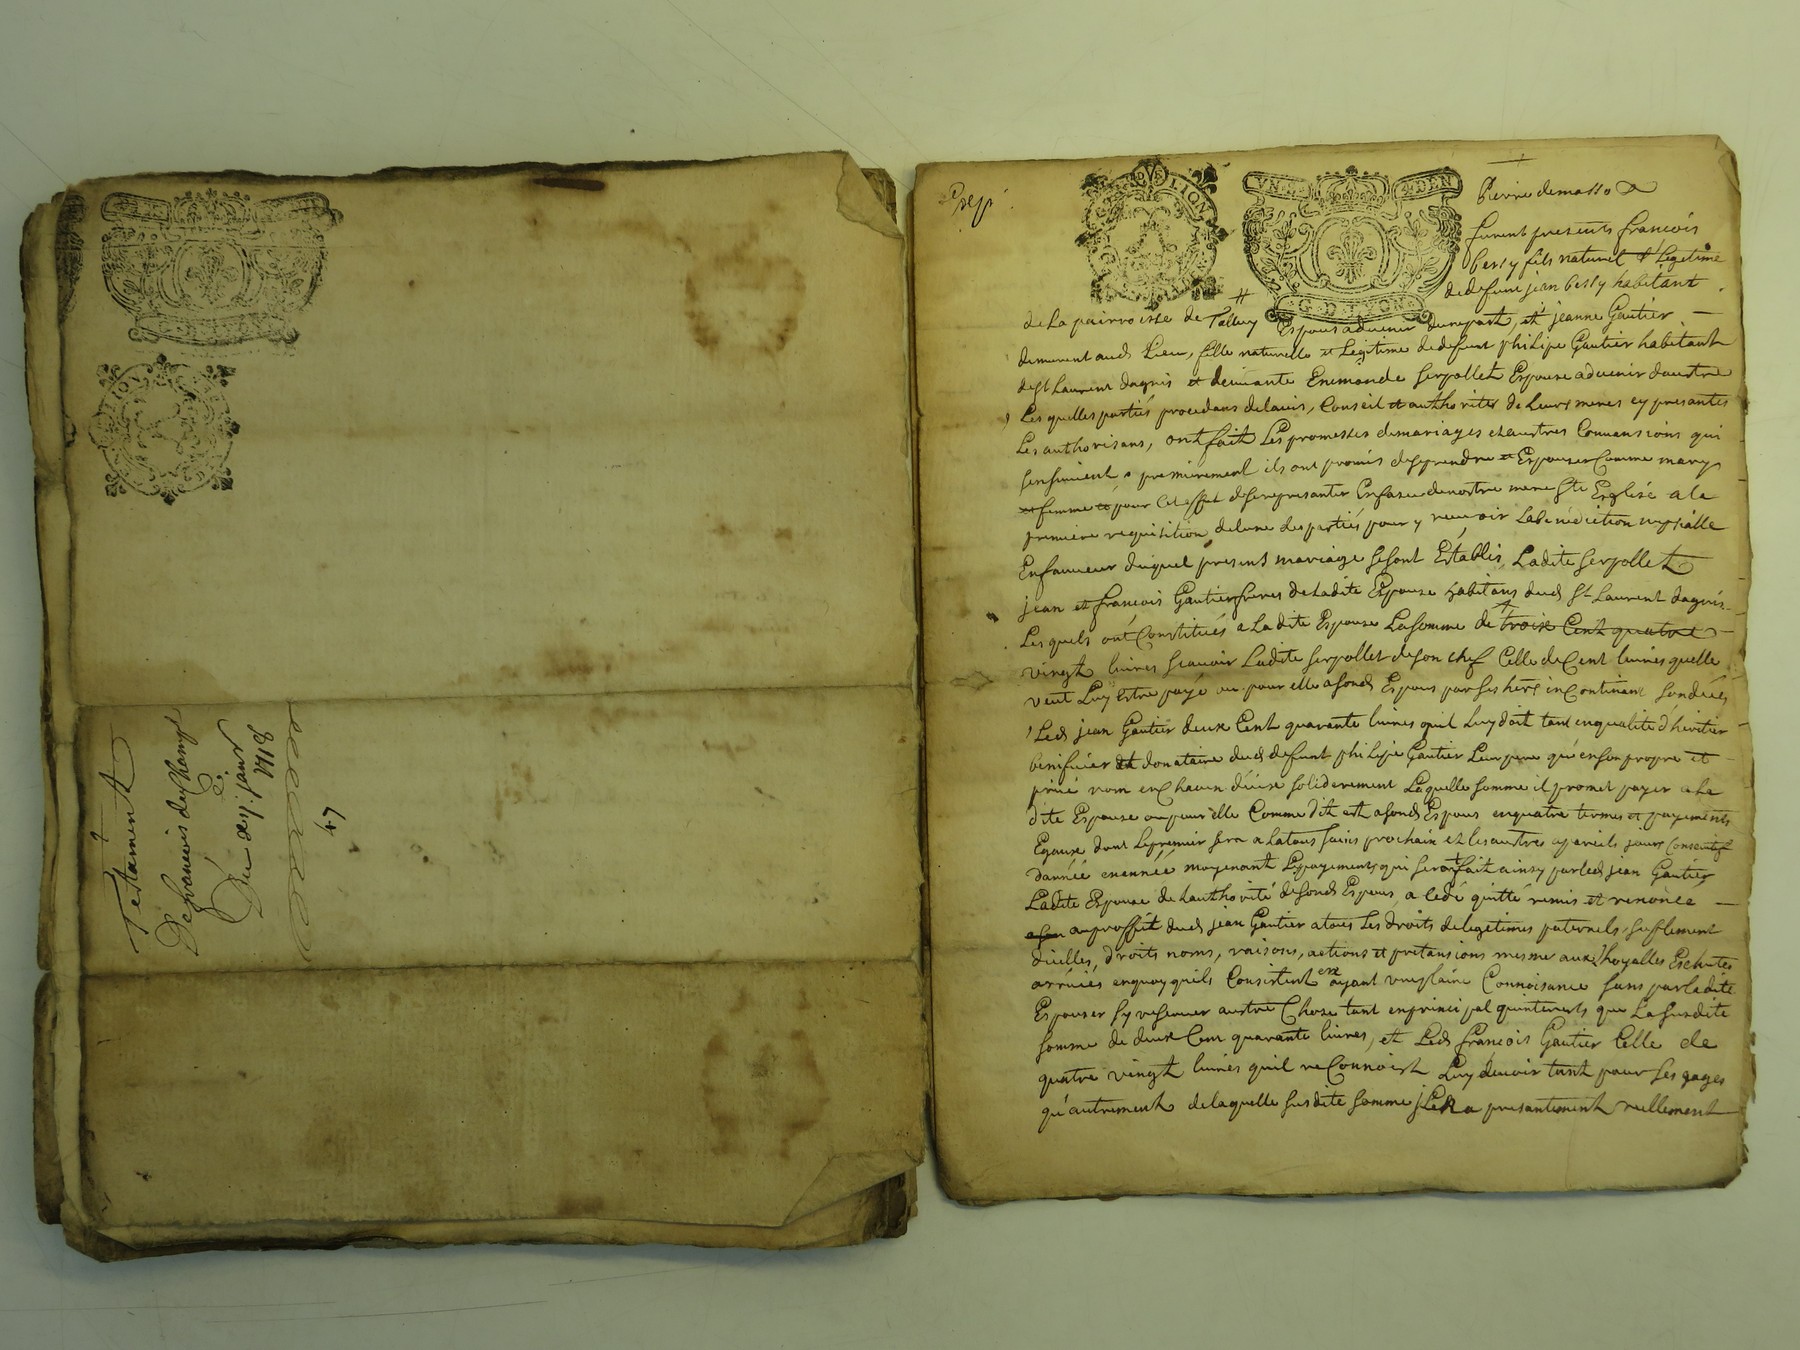 Testament
De francois deschamps
Du xxj. janv
1718
47
G. D. LYON
LION
VN S. DEN
G. D. LYON
Pierre demasso
furent presents francois
bessy fils naturel & Legitime
de defunt jean bessy habitant
de La pairroisse de Talluy Espous aduenir dunepart, et jeanne Gautier
demeurent aud Lieu, fille naturelle et Legitime de defunt philipe Gautier habitant
de St Laurent dagnis et deuiuante Enemonde serpollet Espouse aduenir daustre
Lesquelles partiés procedans delauis, Conseil et authorités de Leurs meres cy presantes
Les authorisans, ont fait Les promesses demariages et austres Conuansions qui
sensuiuent, premirement ils ont promis desprendre et Espouser Comme mary
et femme et pour cet effet dese represanter Enface denostre mere Ste Esglise a la
premiere requisition delune des partiés pour y receuoir Labenediction nupsialle
Enfaueur duquel present mariage sesont Establis Ladite serpollet
jean et francois Gautier freres de Ladite Espouse habitans dud St Laurent dagnis
Lesquels ont Constitués a Ladite Espouse La somme de troise Cent quatre
vingt liures scauoir Ladite serpollet deson chef Celle de Cent liures quelle
veut Luy estre payé ou pour elle asond Espous par ses hers inContinent
Led jean Gautier deux Cent quarante liures quil Luy doit tant enqualite d'heritier
benificier et donataire dud defunt philipe Gautier Leur pere qu'enson propre et
priué nom en Chacun d'eux soliderement Laquelle somme il promet payer a La
dite Espouse ou pour elle Comme dit est asond Espous enquatre termes et payements
Egaux dont Lepremier sera a Latous sains prochain et les austre apareils jours
dannée enannée moyenant Lepayements qui seront fait ainsy par led jean Gautier
Ladite Espouse de Lauthorité desond Espous, a cedé quitté remis et renoncé
auproffit dud jean Gautier atous Les droits delegitimes paternels suplement
dicelles, droits noms, raisons, actions et pretansions mesme aux hoyalles Escheutes
arriuées enquoyquils Consistent en ayant vneplaine Connoisance sans par ladite
Espouser sy reseruer austre Chose tant enprincipal quinterests que La susdite
somme de deux Cent quarante liures, et Led francois Gautier Celle de
quatre vingt liures quil reConnoist Luy deuoir tant pour ses gages
qu'autrement delaquelle susdite somme jl en a presantement reellement